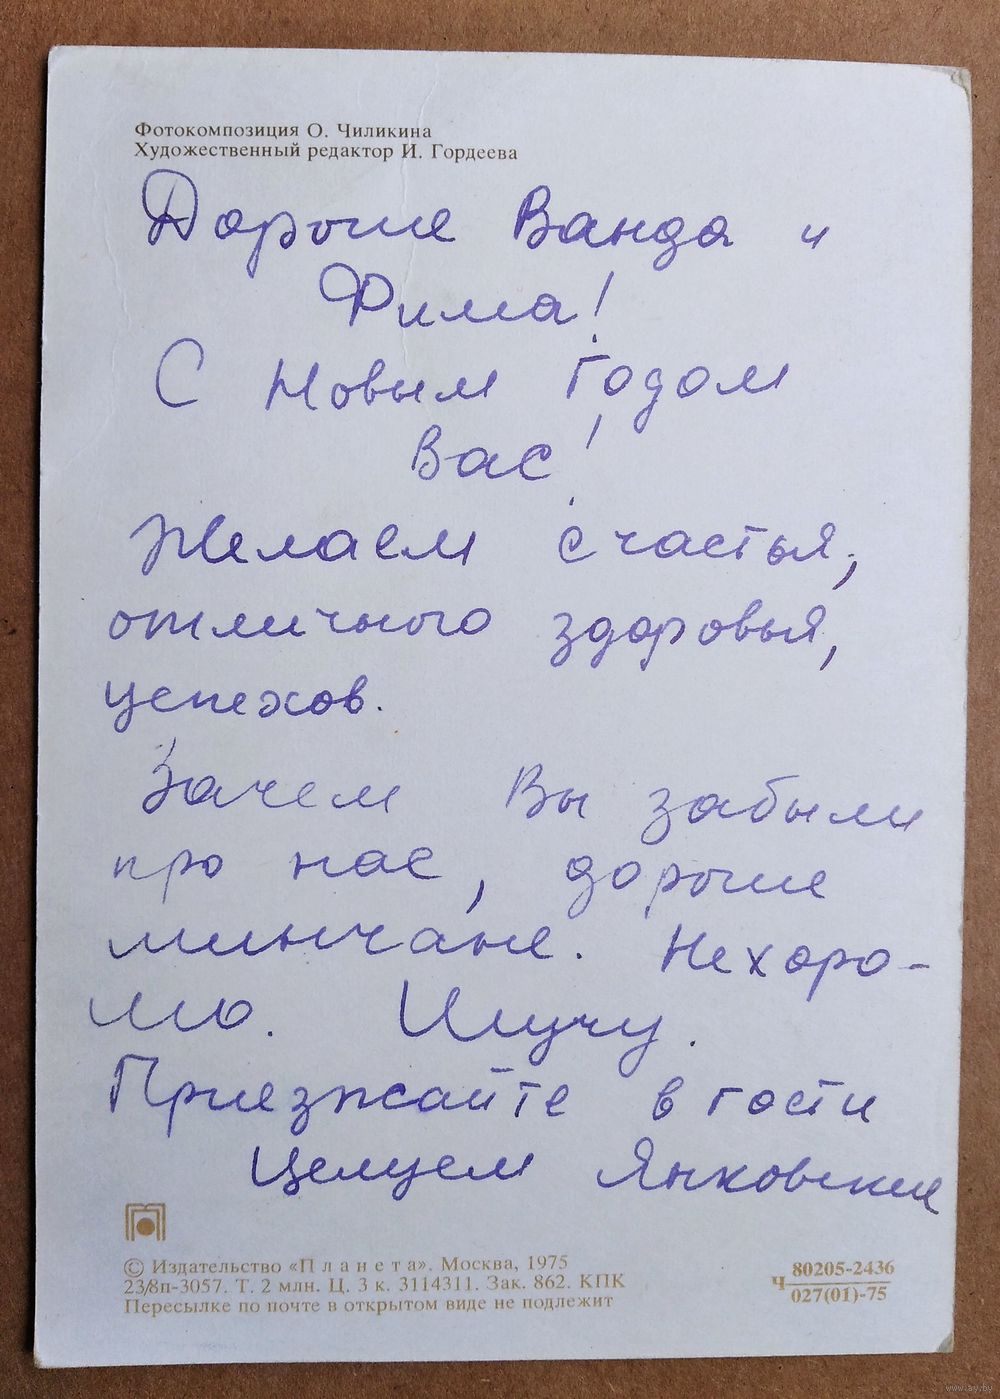 Фотокомпозиция О. Чиликина
Художественный редактор И. Гордеева
Дорогие Ванда и
Фима!
С Новым Годом
Вас!
Желаем счастья,
отличного здоровья,
успехов.
Зачем Вы забыли
про нас, дорогие
минчане. Нехоро-
шо. Шучу.
Приезжайте в гости
Целуем Янковские
© Издательство «Планета». Москва, 1975
23/8п-3057. Т. 2 млн. Ц. 3 к. 3114311. Зак. 862. КПК
Пересылке по почте в открытом виде не подлежит
Ч 80205-2436
027(01)-75
www.ay.by